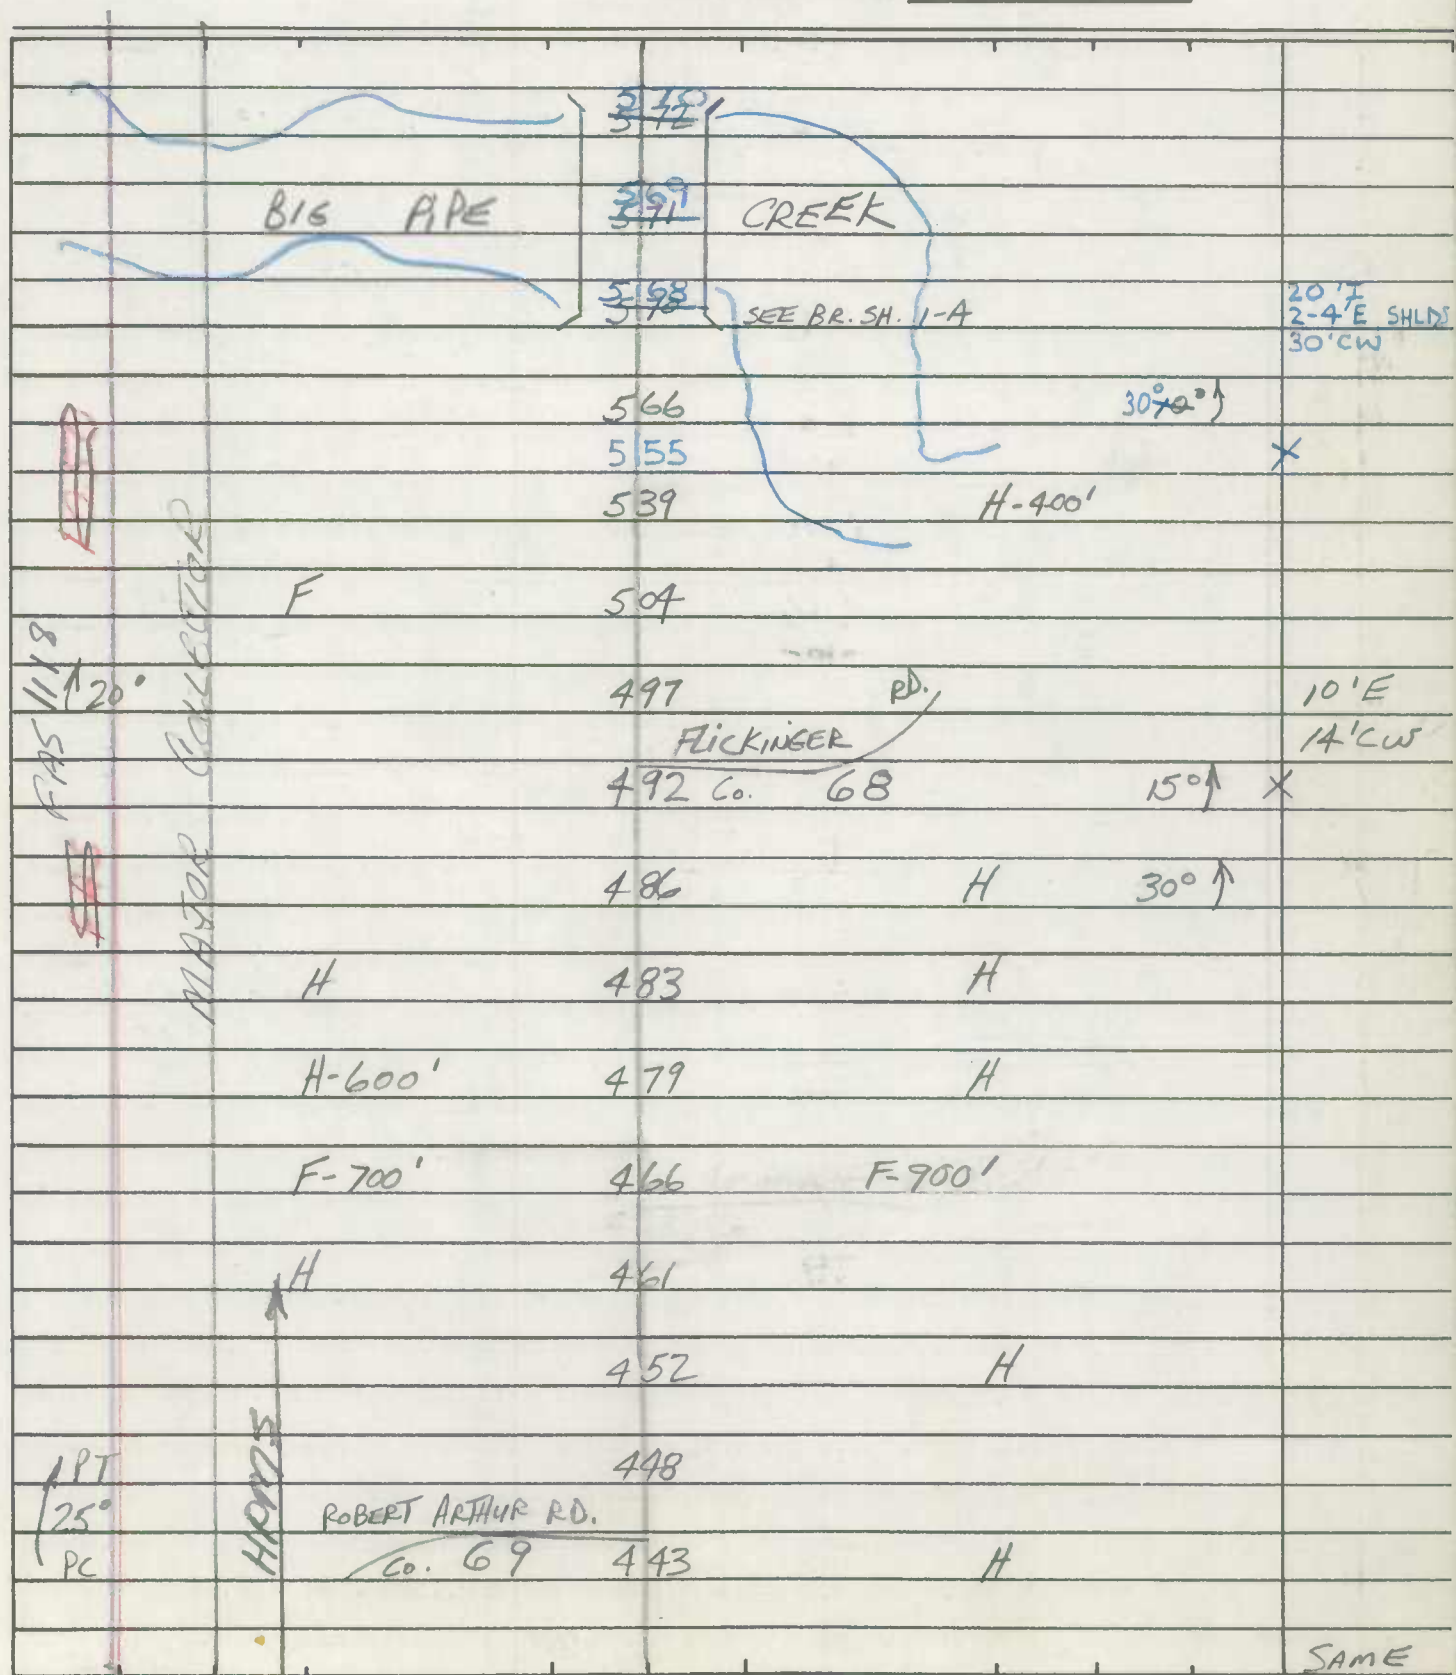 5 70
5 72
5 69
BIG PIPE 5 71 CREEK
5 68
5 70 SEE BR. SH. 1-A
20'I
2-4'E SHLDS
30'CW
566 30°
5 55 X
539 H-400'
F 504
FAS 1118
MAJOR COLLECTOR
20° 497 RD. 10'E
FLICKINGER 14'CW
492 Co. 68 15° X
486 H 30°
H 483 H
H-600' 479 H
F-700' 466 F-900'
H 461
452 H
HPMS
PT 448
25° ROBERT ARTHUR RD.
PC Co. 69 443 H
SAME